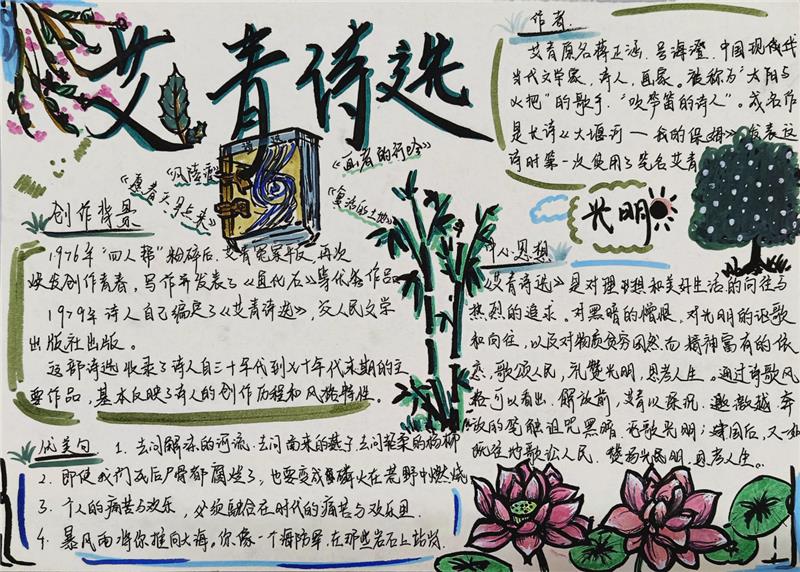 艾青诗选
作者
艾青原名蒋正涵,号海澄,中国现代
当代文学家,诗人,画家。被称为"太阳与
火把"的歌手,"吹芦笛的诗人"。成名作
是长诗《大堰河——我的保姆》,发表这
诗时第一次使用了笔名艾青
光明
《画者的行吟》
《复活的土地》
创作背景
1976年"四人帮"粉碎后,艾青冤案平反,再次
焕发创作青春,写作并发表了《鱼化石》等代表作品
1979年诗人自己编定了《艾青诗选》,交人民文学
出版社出版。
这部诗选收录了诗人自三十年代到七十年代末期的主
要作品,基本反映了诗人的创作历程和风格特性。
中心思想
《艾青诗选》是对理想和美好生活的向往与
热烈的追求。对黑暗的憎恨,对光明的讴歌
和向往,以及对物质贫穷困然而精神富有的依
恋,歌颂人民,礼赞光明,思考人生。通过诗歌风
格可以看出,解放前,艾青以深沉,激越,奔
放的笔触诅咒黑暗,讴歌光明;建国后,又一如
既往地歌讼人民,赞扬光明,思考人生。
优美句
1. 去问解冻的河流 去问南来的燕子 去问轻柔的杨柳
2. 即使我们死后尸骨都腐烂了,也要变成磷火在荒野中燃烧
3. 个人的痛苦与欢乐,必须融合在时代的痛苦与欢乐里
4. 暴风雨将你推向大海。你像一个海防军,在那些岩石上站岗